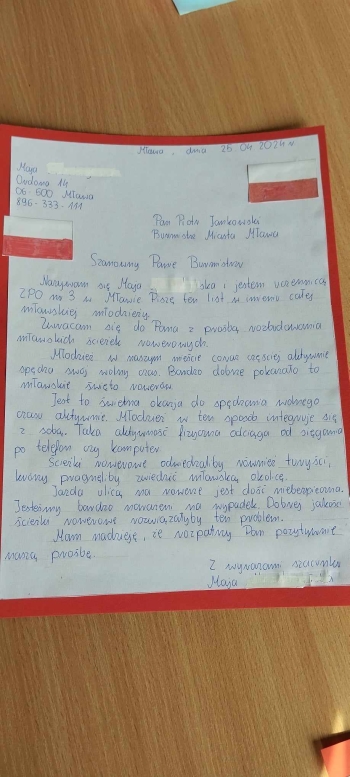 Mława, dnia 25 04 2024 r
Maja
Ordona 14
06-500 Mława
896-333-111
Pan Piotr Jankowski
Burmistrz Miasta Mława
Szanowny Panie Burmistrzu
Nazywam się Maja ska i jestem uczennicą
ZPO nr 3 w Mławie Piszę ten list w imieniu całej
mławskiej młodzieży.
Zwracam się do Pana z prośbą rozbudowania
mławskich ścieżek rowerowych.
Młodzież w naszym mieście coraz częściej aktywnie
spędza swój wolny czas. Bardzo dobrze pokazało to
mławskie święto rowerów.
Jest to świetna okazja do spędzania wolnego
czasu aktywnie. Młodzież w ten sposób integruje się
z sobą. Taka aktywność fizyczna odciąga od sięgania
po telefon czy komputer.
Ścieżki rowerowe odwiedzaliby również turyści,
którzy pragnęliby zwiedzić mławską okolicę.
Jazda ulicą na rowerze jest dość niebezpieczna.
Jesteśmy bardzo narażeni na wypadek. Dobrej jakości
ścieżki rowerowe rozwiązałyby ten problem.
Mam nadzieję, że rozpatrzy Pan pozytywnie
naszą prośbę.
Z wyrazami szacunku
Maja